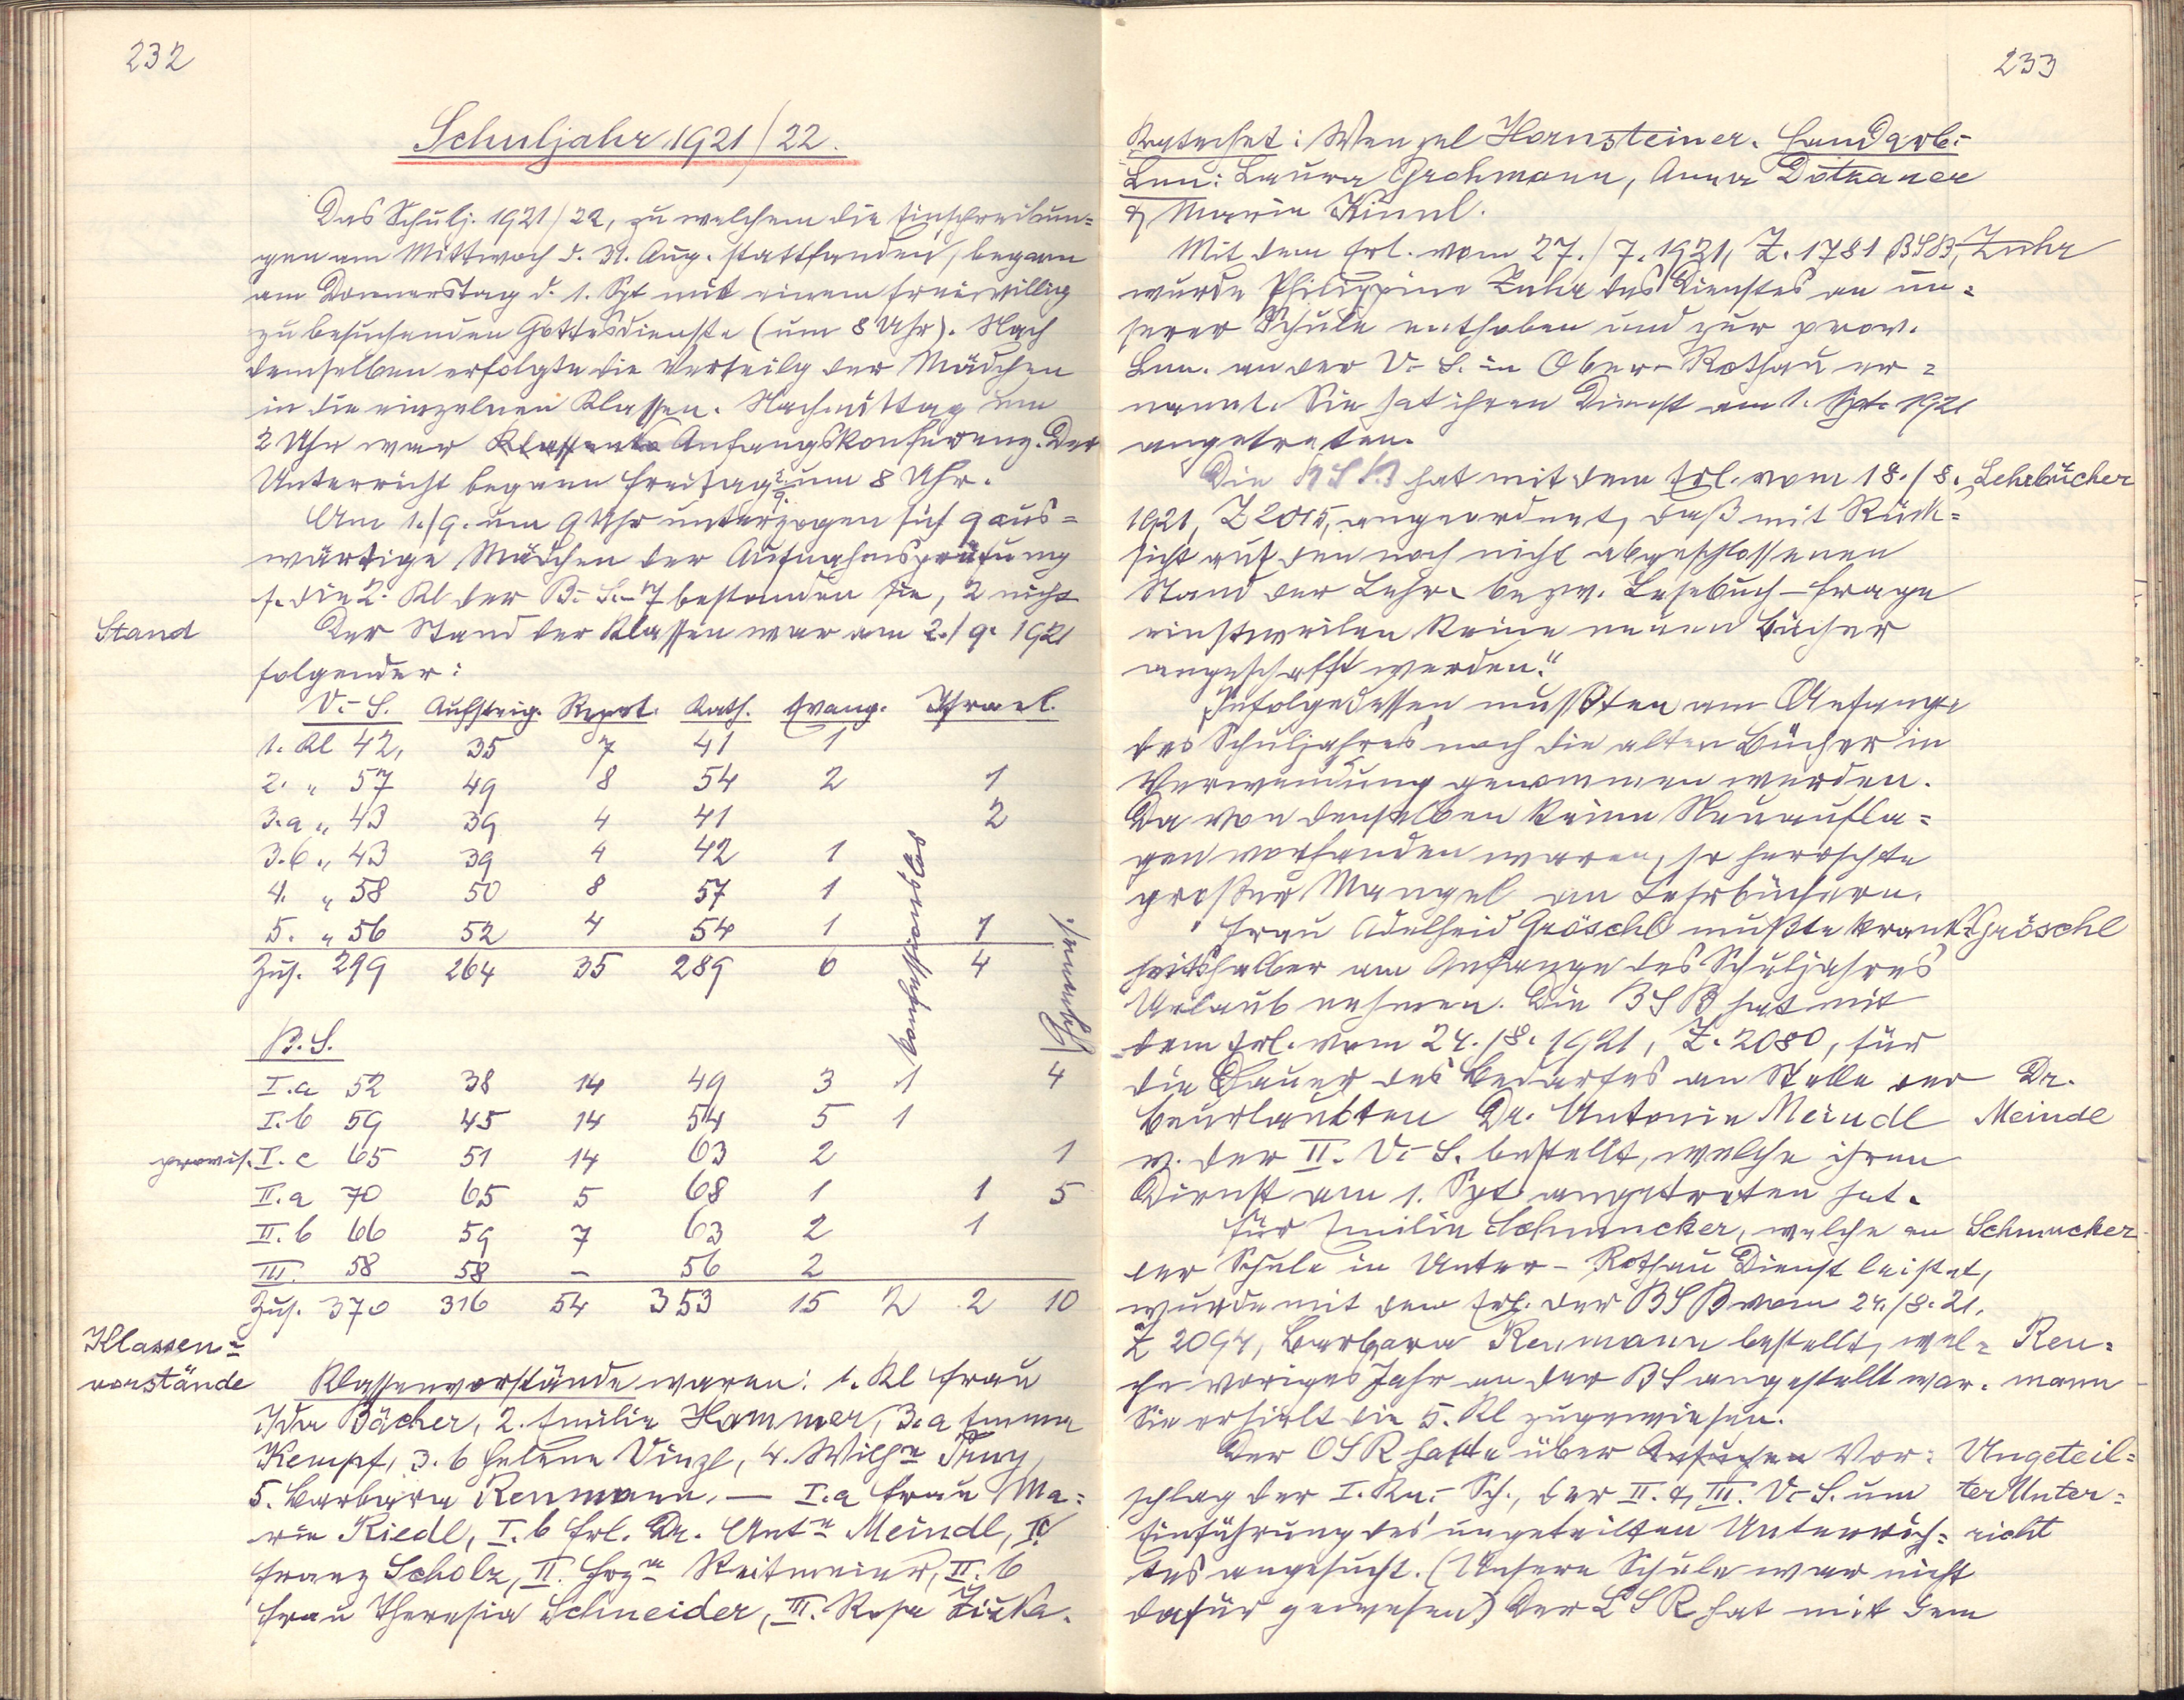 232
Schuljahr 1921/22.
Das Schulj. 1921/22, zu welchem die Einschreibun=
gen am Mittwoch d. 31. Aug. stattfanden, begann
am Donnerstag d. 1. Spt mit einem freiwillig
zu besuchenden Gottesdienste (um 8 Uhr). Nach
demselben erfolgte die Verteilg der Mädchen
in die einzelnen Klassen. Nachmittag um
2 Uhr war Anfangskonferenz. Der
Unterricht begann Freitag 2/9 um 8 Uhr.
Am 1./9. um 9 Uhr unterzogen sich 9 aus=
wärtige Mädchen der Aufnahmsprüfung
f. die 2. Kl der B.-S. – 7 bestanden sie, 2 nicht
Stand
Der Stand der Klassen war am 2./9. 1921
folgender:
V.-S. Aufsteig. Repet. Kath. Evang. Israel.
1. Kl 42, 35 7 41 1
2. „ 57 49 8 54 2 1
3.a „ 43 39 4 41 2
3.b „ 43 39 4 42 1
4. „ 58 50 8 57 1
5. „ 56 52 4 54 1 1
Zus. 299 264 35 289 6 4
B.S.
I.a 52 38 14 49 3 1 4
I.b 59 45 14 54 5 1
provis. I.c 65 51 14 63 2 1
II.a 70 65 5 68 1 1 5
II.b 66 59 7 63 2 1
III. 58 58 – 56 2
Zus. 370 316 54 353 15 2 2 10
Klassen=
vorstände
Klassenvorstände waren: 1. Kl Frau
Ida Bächer, 2. Emilie Hammer, 3.a Emma
Kempf, 3.b Helene Vinzl, 4. Wilhe
5. Barbara Renmann. — I.a Frau Ma=
rie Riedl, I.b Frl. Dr. Ante Meindl, Ic
Franz Scholz, II. Reitmeier, II.b
Frau Theresia Schneider, III. Rosa Zizka.
233
Katechet: Wenzel Hornsteiner. Handarb.-
Lnn: Laura Grohmann, Anna Dotzauer
& Marie Kinnl.
Mit dem Erl. vom 27./7. 1921, Z. 1781 BSB, Zuhr
wurde Philippine Zuhr des Dienstes an un=
serer Schule enthoben und zur prov.
Lnn. an der V.-S. in Ober-Rothau er=
nannt. Sie hat ihren Dienst am 1. Spt. 1921
angetreten.
Die BSB hat mit dem Erl. vom 18./8. Lehrbücher
1921, Z 2015, angeordnet, daß mit Rück=
sicht auf den noch nicht abgeschlossenen
Stand der Lehr- bezw. Lesebuch-Frage
einstweilen keine neuen Bücher
angeschafft werden."
Infolgedessen mußten am Anfange
des Schuljahres noch die alten Bücher in
Verwendung genommen werden.
Da von denselben keine Neuaufla=
gen vorhanden waren, so herrschte
großer Mangel an Lehrbüchern.
Frau Adelheid Gröschl mußte krank= Gröschl
heitshalber am Anfange des Schuljahres
Urlaub nehmen. Die BSB hat mit
dem Erl. vom 24./8. 1921, Z. 2080, für
die Dauer des Bedarfes an Stelle der Dr.
beurlaubten Dr. Antonie Meindl Meindl
v. der II. V.-S. bestellt, welche ihren
Dienst am 1. Spt angetreten hat.
Für Emilie Schmucker, welche an Schmucker
der Schule in Unter-Rothau Dienst leistet,
wurde mit dem Erl. der BSB vom 24./8. 21,
Z 2094, Barbara Renmann bestellt, wel= Ren=
che voriges Jahr an der BS angestellt war. mann
Sie erhielt die 5. Kl zugewiesen.
Der OSR hatte über Ansuchen Vor= Ungeteil=
schlag der I. Kn.-Sch., der II. & III. V.-S. um ter Unter=
Einführung des ungeteilten Unterrich= richt
tes angesucht. (Unsere Schule war nicht
dafür gewesen) Der LSR hat mit dem